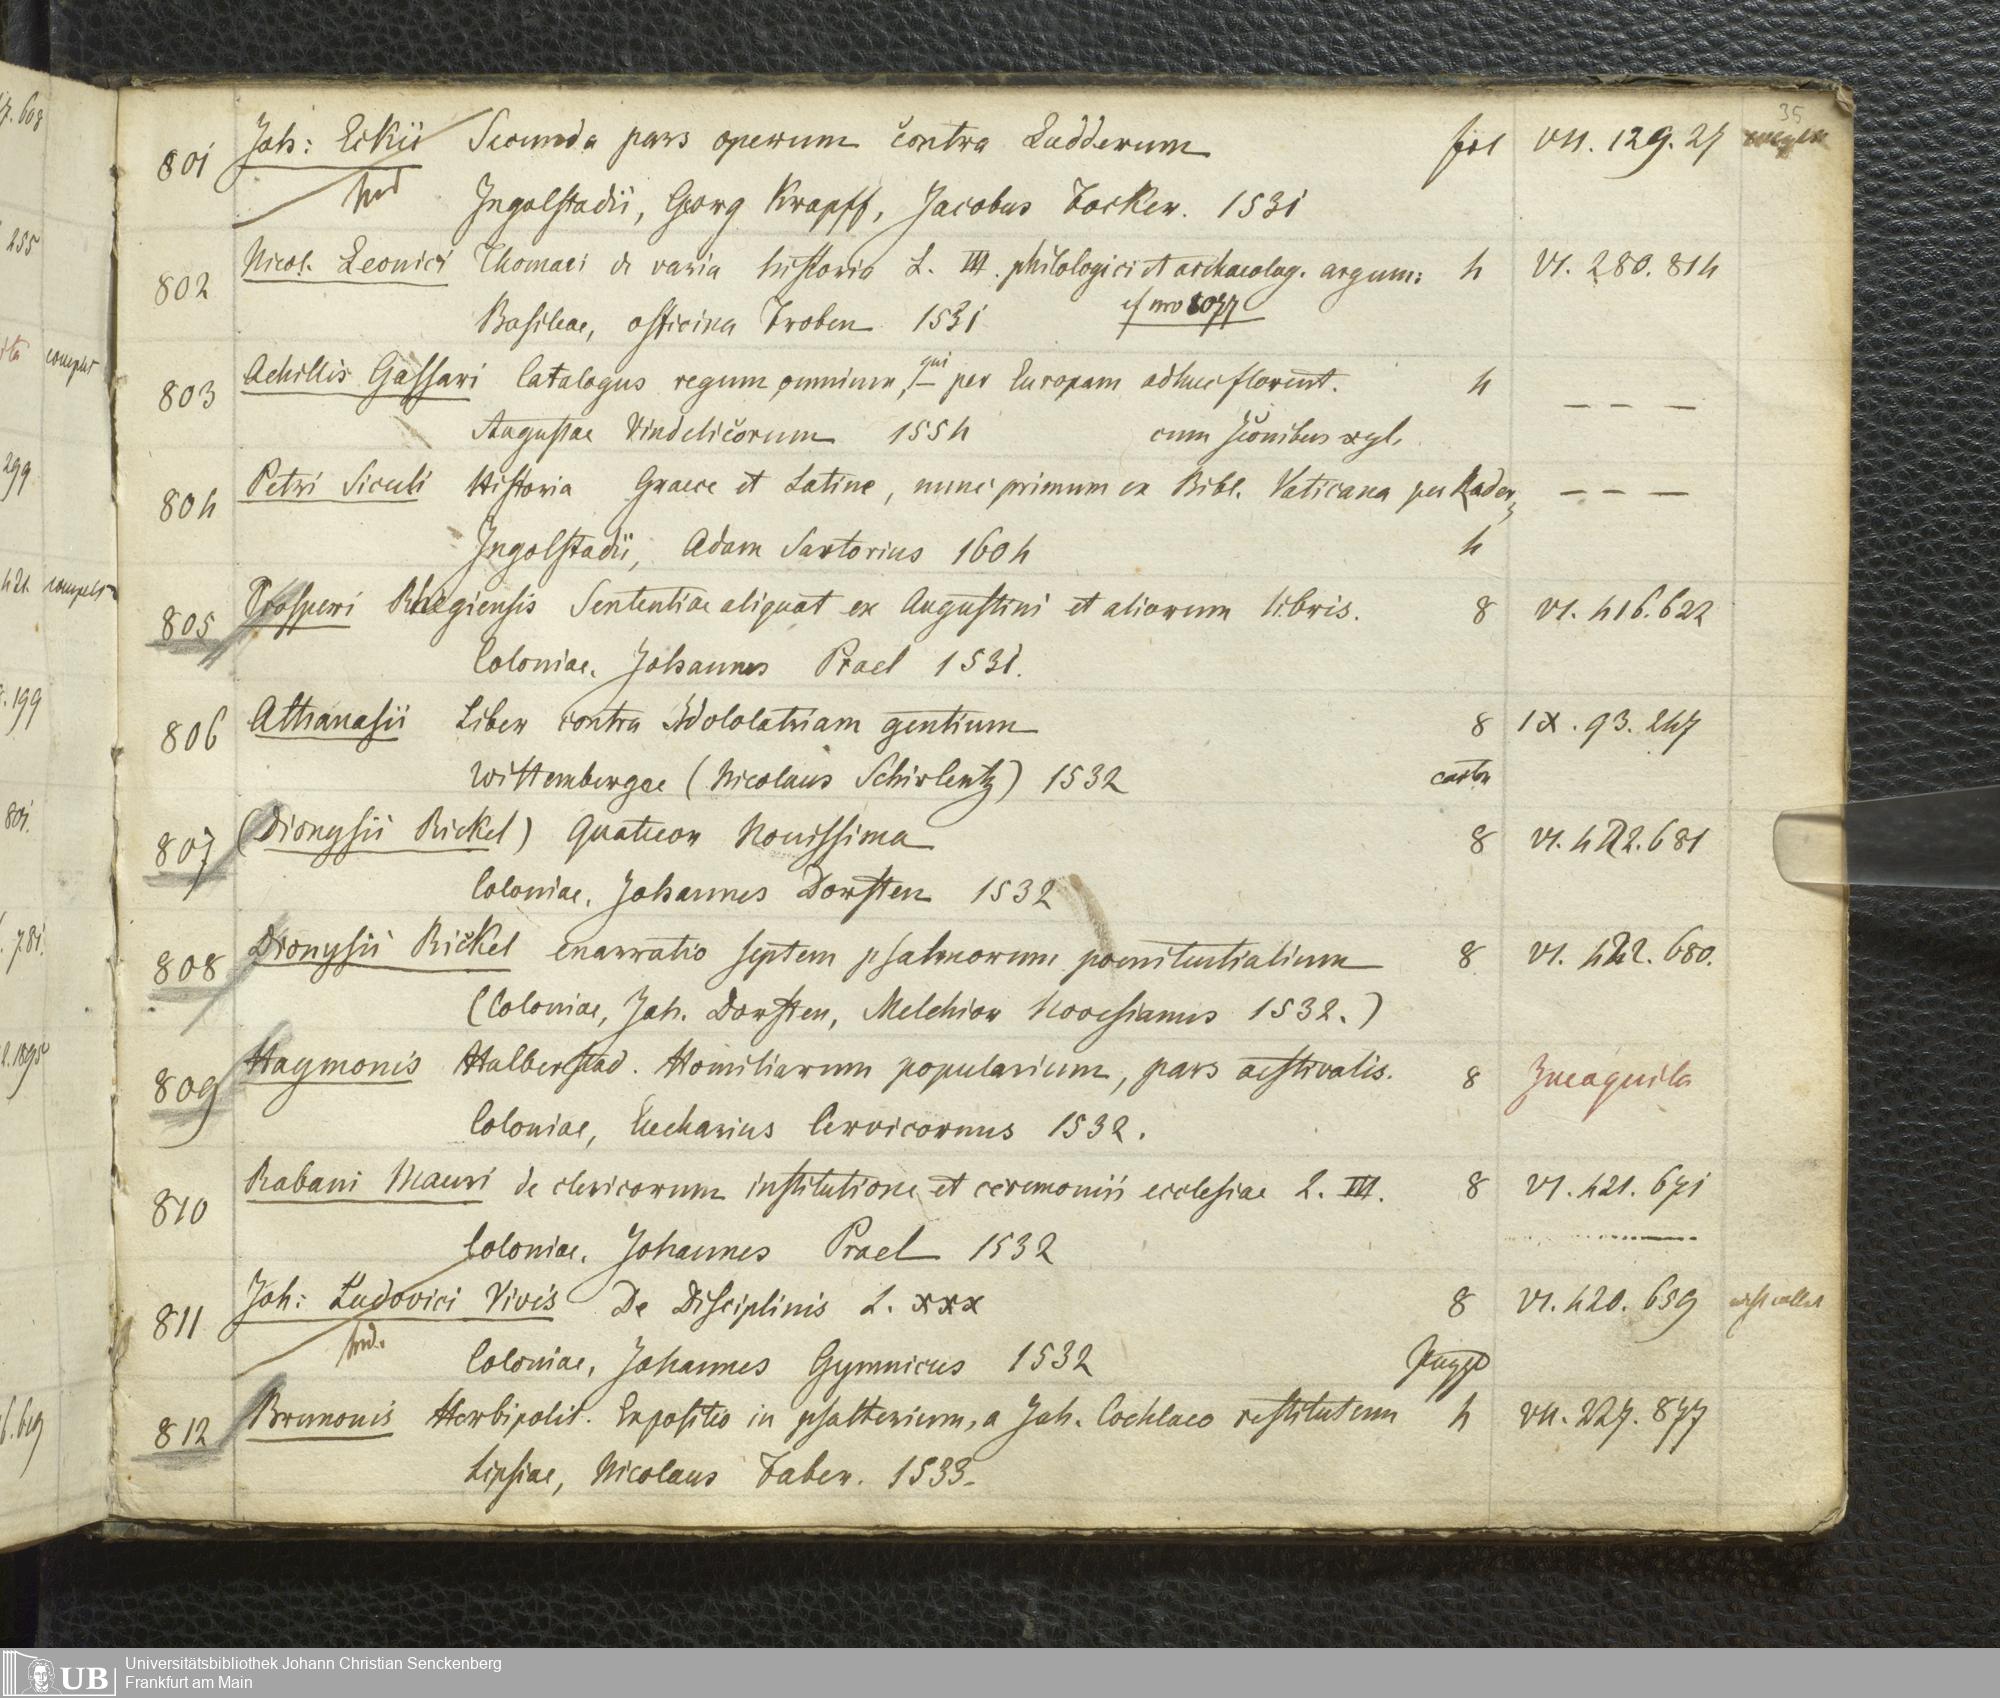 35
801 Joh: Eckii Secunda pars operum contra Ludderum fol VII. 129. 27
Ingolstadii, Georg Krapff, Jacobus Focker. 1531
802 Nicol. Leonici Thomaei de varia historia L. III. philologici et archaeolog. argum: 4 VI. 280. 814
Basileae, officina Froben 1531 cf nro
803 Achillis Gassari Catalogus regum omnium, qui per Europam adhuc florent. 4 — — —
Augustae Vindelicorum 1554 cum Iconibus xyl.
804 Petri Siculi Historia Graece et Latine, nunc primum ex Bibl. Vaticana per Rader, — — —
Ingolstadii, Adam Sartorius 1604 4
805 Prosperi Rhegiensis Sententiae aliquot ex Augustini et aliorum libris. 8 VI. 416. 622
Coloniae, Johannes Prael 1531.
806 Athanasii Liber contra Idololatriam gentium 8 IX. 93. 247
Wittembergae (Nicolaus Schirlentz) 1532
807 (Dionysii Rickel) Quatuor Novissima 8 VI. 422. 681
Coloniae, Johannes Dorsten 1532
808 Dionysii Rickel enarratio septem psalmorum poenitentialium 8 VI. 422. 680.
(Coloniae, Joh. Dorsten, Melchior Novesianus 1532.)
809 Haymonis Halberstad. Homiliarum popularium, pars aestivalis. 8
Coloniae, Eucharius Cervicornus 1532.
810 Rabani Mauri de clericorum institutione et ceremonii ecclesiae L. III. 8 VI. 421. 671
Coloniae, Johannes Prael 1532
811 Joh: Ludovici Vivis De Disciplinis L. xxx 8 VI. 420. 659
Coloniae, Johannes Gymnicus 1532
812 Brunonis Herbipolit. Expositio in psalterium, a Joh. Cochlaeo restitutum 4 VII. 227. 877
Lipsiae, Nicolaus Faber. 1533.
UB
Universitätsbibliothek Johann Christian Senckenberg
Frankfurt am Main